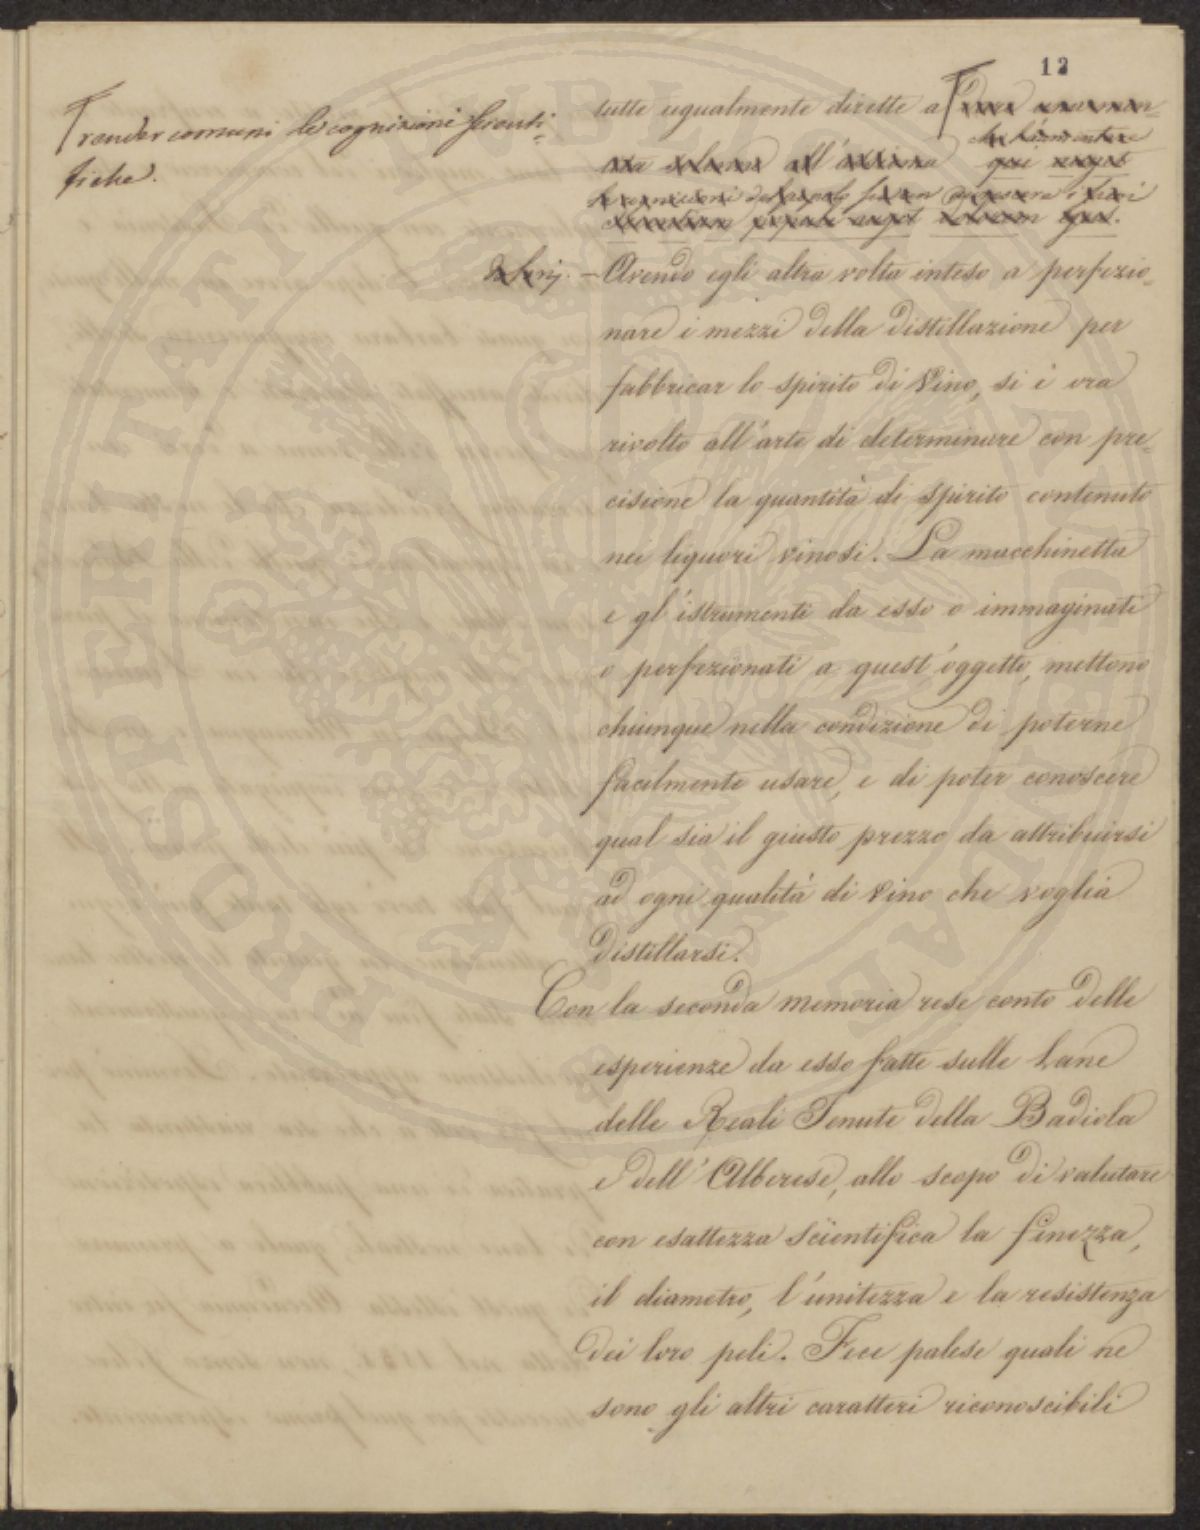 12
render comuni le cognizioni scienti-
fiche.
tutte ugualmente dirette a
all'
che
Avendo egli altra volta inteso a perfezio-
nare i mezzi della distillazione per
fabbricar lo spirito di Vino, si è ora
rivolto all'arte di determinare con pre-
cisione la quantità di spirito contenuto
nei liquori vinosi. La macchinetta
e gl'istrumenti da esso o immaginati
o perfezionati a quest'oggetto, mettono
chiunque nella condizione di poterne
facilmente usare, e di poter conoscere
qual sia il giusto prezzo da attribuirsi
ad ogni qualità di Vino che voglia
distillarsi.
Con la seconda memoria rese conto delle
esperienze da esso fatte sulle Lane
delle Reali Tenute della Badiola
e dell'Alberese, allo scopo di valutare
con esattezza scientifica la finezza,
il diametro, l'unitezza e la resistenza
dei loro peli. Fece palese quali ne
sono gli altri caratteri riconoscibili
PROSPERITATI PUBLICAE AUGENDAE